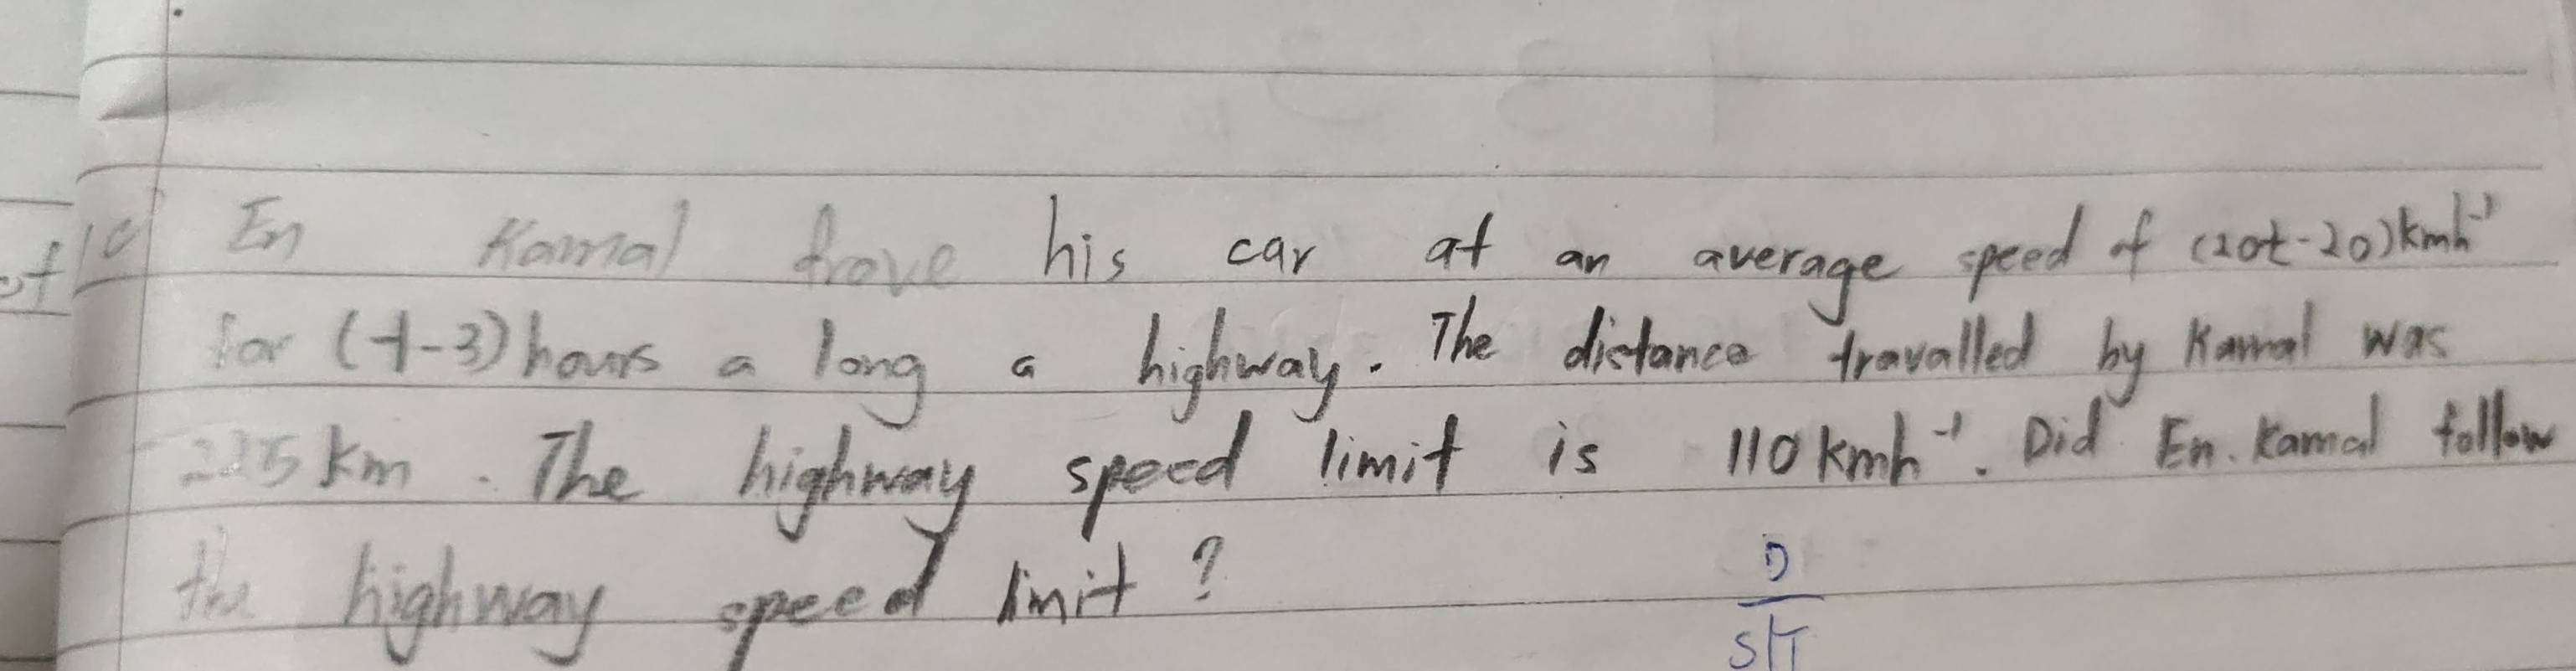 of
10 En Kamal frove his car at an average speed of (20t-20)kmh⁻¹
for (t-3) hours a long a highway. The distance travalled by Kamal was
225 km. The highway speed limit is 110 kmh⁻¹. Did En. Kamal follow
the highway speed limit?
D
S|T